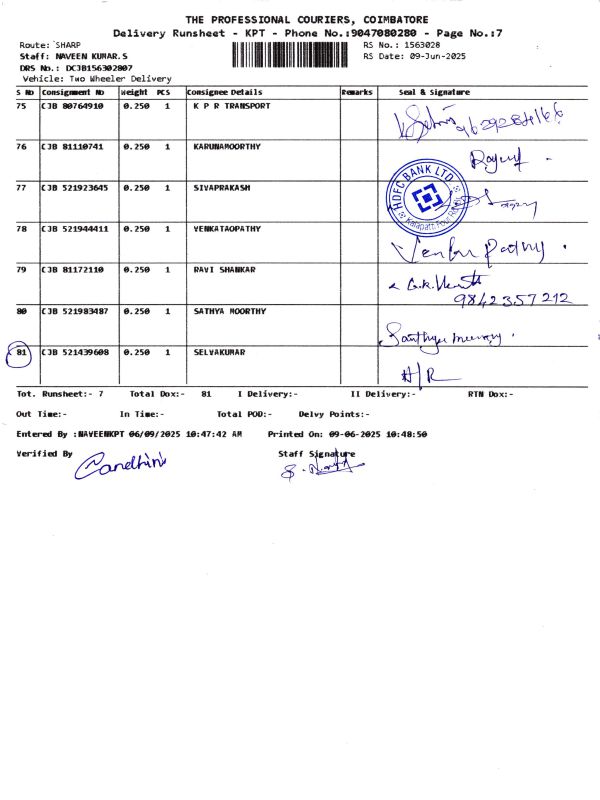 THE PROFESSIONAL COURIERS, COIMBATORE
Delivery Runsheet - KPT - Phone No.:9047080280 - Page No.:7
Route: SHARP RS No.: 1563028
Staff: NAVEEN KUMAR.S RS Date: 09-Jun-2025
DRS No.: DCJB156302807
Vehicle: Two Wheeler Delivery
S No Consignment No Weight PCS Consignee Details Remarks Seal & Signature
75 CJB 80764910 0.250 1 K P R TRANSPORT
76 CJB 81110741 0.250 1 KARUNAMOORTHY
77 CJB 521923645 0.250 1 SIVAPRAKASH HDFC BANK LTD
78 CJB 521944411 0.250 1 VENKATAOPATHY
79 CJB 81172110 0.250 1 RAVI SHANKAR 9842357212
80 CJB 521983487 0.250 1 SATHYA MOORTHY
81 CJB 521439608 0.250 1 SELVAKUMAR H/R
Tot. Runsheet:- 7 Total Dox:- 81 I Delivery:- II Delivery:- RTN Dox:-
Out Time:- In Time:- Total POD:- Delvy Points:-
Entered By :NAVEENKPT 06/09/2025 10:47:42 AM Printed On: 09-06-2025 10:48:50
Verified By Staff Signature